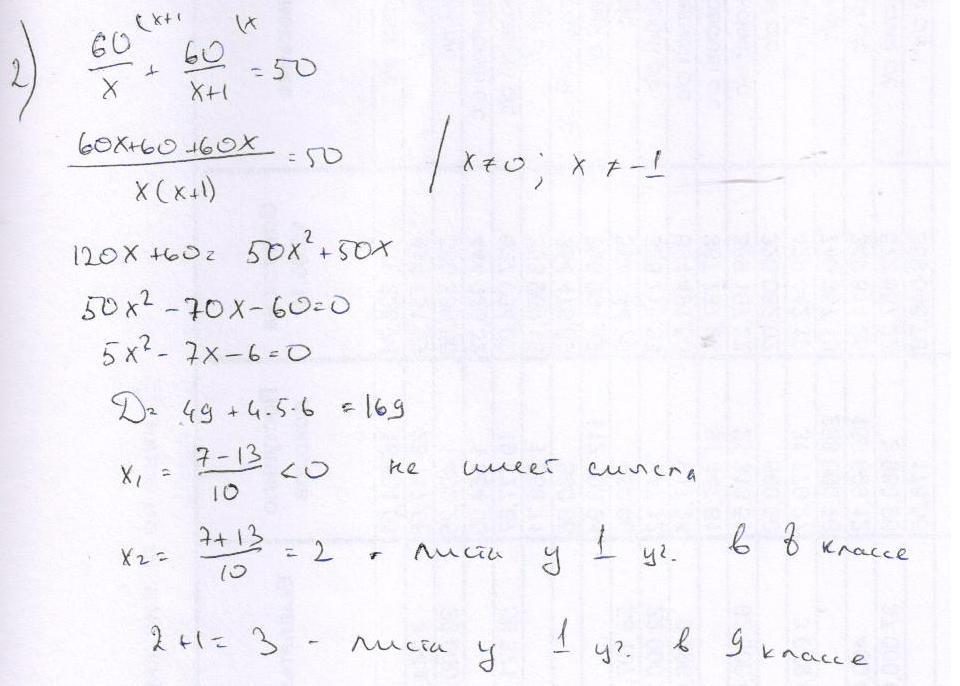 2) 60/x (x+1 + 60/x+1 (x = 50
60x+60+60x / x(x+1) = 50 / x≠0; x ≠ -1
120x+60= 50x²+50x
50x² - 70x - 60=0
5x² - 7x - 6=0
D= 49 + 4·5·6 = 169
x₁ = 7-13/10 <0 не имеет смысла
x₂ = 7+13/10 = 2 - листа у 1 уч. в 8 классе
2+1= 3 - листа у 1 уч. в 9 классе